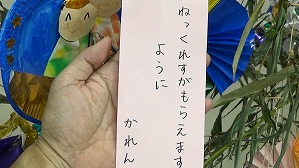 ねっくれすがもらえます
ように
かれん